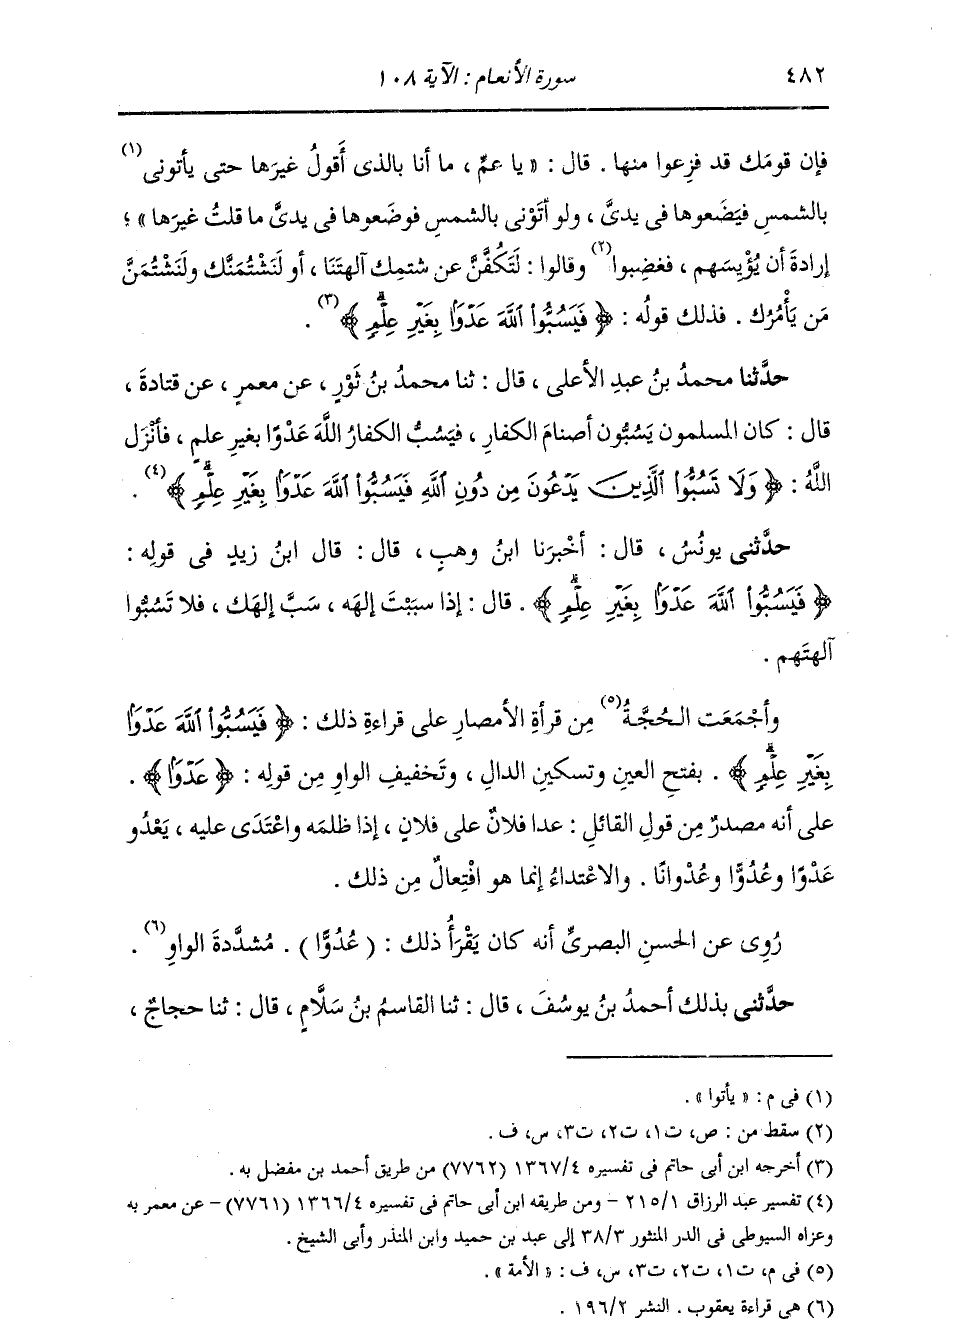 ٤٨٢
سورة الأنعام : الآية ١٠٨
فإن قومَك قد فزِعوا منها . قال : « يا عمِّ ، ما أنا بالذى أَقولُ غيرَها حتى يأتونى(١)
بالشمسِ فيَضَعوها فى يدىَّ ، ولو أتَوْنى بالشمسِ فوضَعوها فى يدىَّ ما قلتُ غيرَها » ؛
إرادةَ أن يُؤْيِسَهم ، فغضِبوا(٢) وقالوا : لَتَكُفَّنَّ عن شتمِك آلهتَنَا ، أو لَنَشْتُمَنَّك ولَنَشْتُمَنَّ
مَن يَأْمُرُك . فذلك قولُه : ﴿ فَيَسُبُّوا۟ ٱللَّهَ عَدْوًۢا بِغَيْرِ عِلْمٍۗ ﴾(٣) .
حدَّثنا محمدُ بنُ عبدِ الأعلى ، قال : ثنا محمدُ بنُ ثَوْرٍ ، عن معمرٍ ، عن قتادةَ ،
قال : كان المسلمون يَسُبُّون أصنامَ الكفارِ ، فيَسُبُّ الكفارُ اللَّهَ عَدْوًا بغيرِ علمٍ ، فأنْزَل
اللَّهُ : ﴿ وَلَا تَسُبُّوا۟ ٱلَّذِينَ يَدْعُونَ مِن دُونِ ٱللَّهِ فَيَسُبُّوا۟ ٱللَّهَ عَدْوًۢا بِغَيْرِ عِلْمٍۗ ﴾(٤) .
حدَّثنى يونُسُ ، قال : أخْبرَنا ابنُ وهبٍ ، قال : قال ابنُ زيدٍ فى قولِه :
﴿ فَيَسُبُّوا۟ ٱللَّهَ عَدْوًۢا بِغَيْرِ عِلْمٍۗ ﴾ . قال : إذا سبَبْتَ إلهَه ، سَبَّ إلهَك ، فلا تَسُبُّوا
آلهتَهم .
وأجْمَعَت الحُجَّةُ(٥) مِن قرأةِ الأمصارِ على قراءةِ ذلك : ﴿ فَيَسُبُّوا۟ ٱللَّهَ عَدْوًۢا
بِغَيْرِ عِلْمٍۗ ﴾ . بفتحِ العينِ وتسكينِ الدالِ ، وتَخفيفِ الواوِ مِن قولِه : ﴿ عَدْوًۢا ﴾ .
على أنه مصدرٌ مِن قولِ القائلِ : عدا فلانٌ على فلانٍ ، إذا ظلمَه واعْتَدَى عليه ، يَعْدُو
عَدْوًا وعُدُوًّا وعُدْوانًا . والاعْتداءُ إنما هو افْتِعالٌ مِن ذلك .
رُوِى عن الحسنِ البصرىِّ أنه كان يَقْرَأُ ذلك : ( عُدُوًّا ) . مُشدَّدةَ الواوِ(٦) .
حدَّثنى بذلك أحمدُ بنُ يوسُفَ ، قال : ثنا القاسمُ بنُ سَلَّامٍ ، قال : ثنا حجاجٌ ،
(١) فى م : « يأتوا » .
(٢) سقط من : ص، ت١، ت٢، ت٣، س، ف .
(٣) أخرجه ابن أبى حاتم فى تفسيره ١٣٦٧/٤ (٧٧٦٢) من طريق أحمد بن مفضل به .
(٤) تفسير عبد الرزاق ٢١٥/١ - ومن طريقه ابن أبى حاتم فى تفسيره ١٣٦٦/٤ (٧٧٦١) - عن معمر به
وعزاه السيوطى فى الدر المنثور ٣٨/٣ إلى عبد بن حميد وابن المنذر وأبى الشيخ .
(٥) فى م، ت١، ت٢، ت٣، س، ف : « الأمة » .
(٦) هى قراءة يعقوب . النشر ١٩٦/٢ .